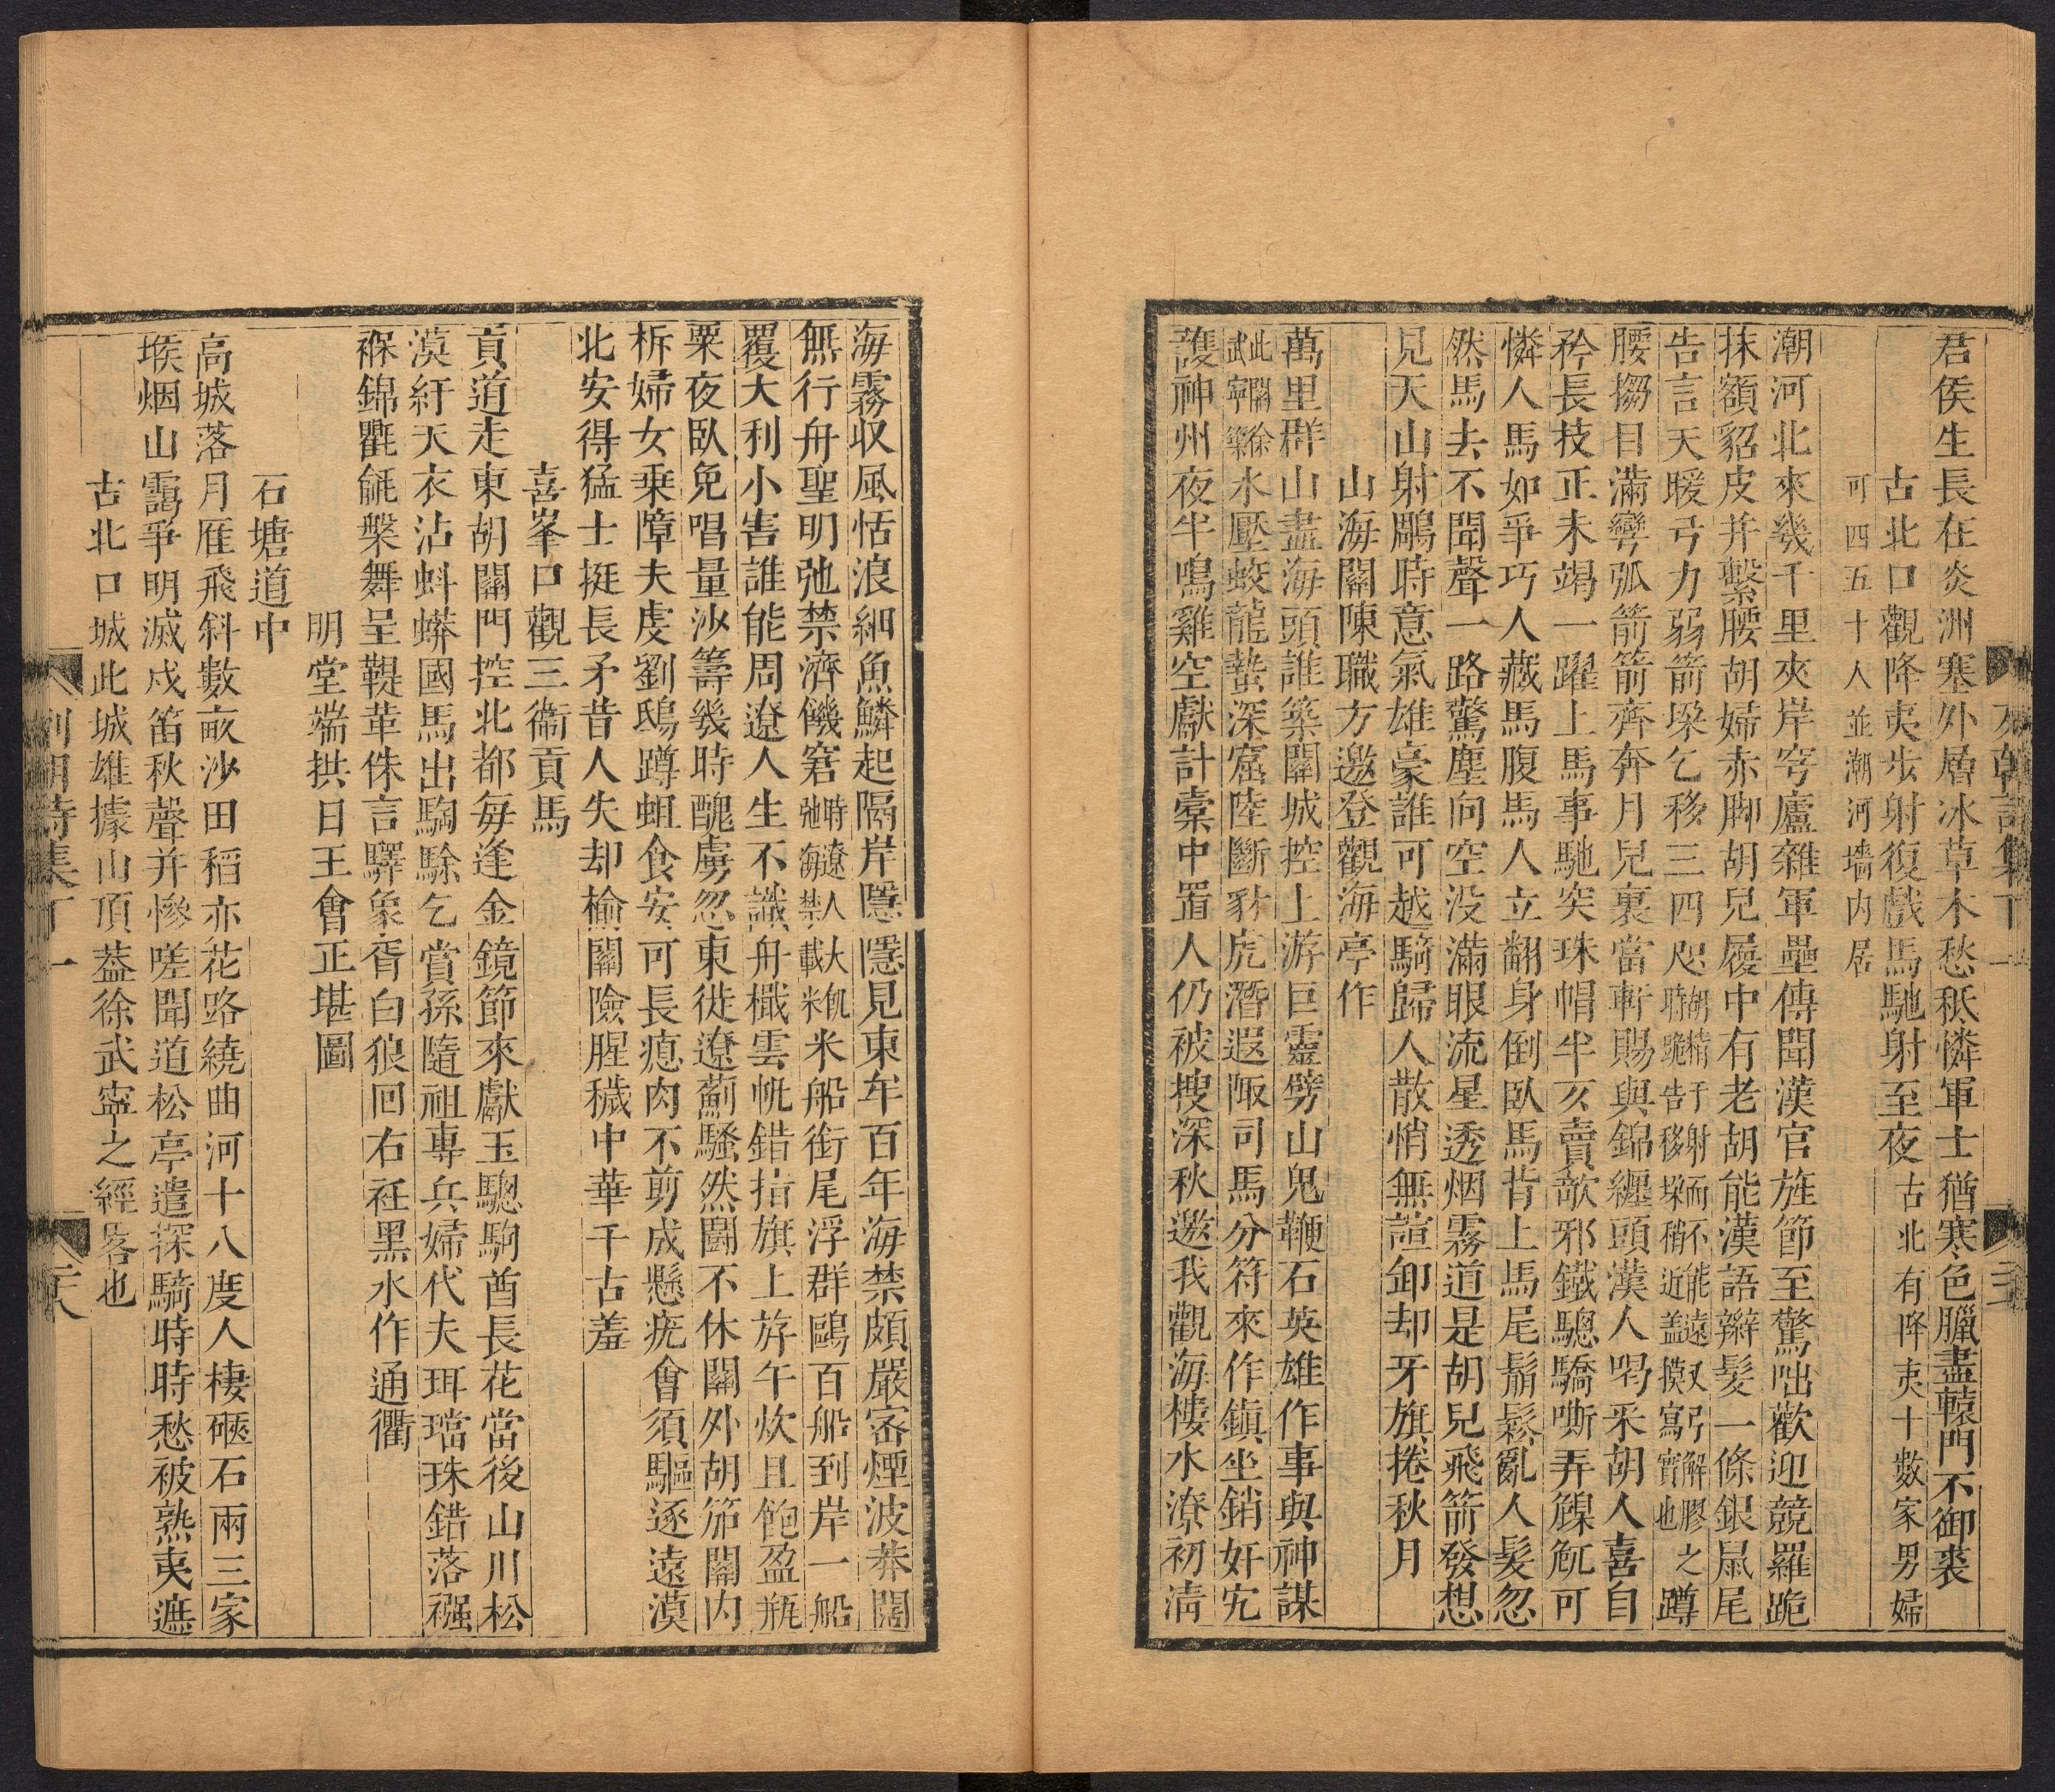 君侯生長在炎洲塞外層冰草木愁秖憐軍士猶寒色臘盡轅門不御裘
古北口觀降夷步射復戲馬馳射至夜古北有降夷十數家男婦
可四五十人並潮河墻内居
潮河北來幾千里夾岸穹廬雜軍壘傳聞漢官旌節至驚咄歡迎競羅跪
抹額貂皮并繫腰胡婦赤脚胡兒履中有老胡能漢語辮髮一條銀鼠尾
告言天暖弓力弱箭垛乞移三四咫胡精于射而不能遠又弓解膠之時跪告移垛稍近盖摸寫實也蹲
腰搊目滿彎弧箭箭齊奔月兒裏當軒賜與錦纏頭漢人喝釆胡人喜自
矜長技正未竭一躍上馬事馳突珠帽半亥賣欹邪鐵驄驕嘶弄䚗䚎可
憐人馬如爭巧人藏馬腹馬人立翻身倒臥馬背上馬尾鬅鬆亂人髮忽
然馬去不聞聲一路驚塵向空没滿眼流星透烟霧道是胡兒飛箭發想
見天山射鵰時意氣雄豪誰可越騎歸人散悄無諠卸却牙旗捲秋月
山海關陳職方邀登觀海亭作
萬里群山山盡海頭誰築關城控上游巨靈劈山鬼鞭石英雄作事與神謀
此關徐武寧築水壓蛟龍蟄深窟陸斷豺虎潛遐陬司馬分符來作鎮坐銷奸宄
護神州夜半鳴雞空獻計橐中置人仍被搜深秋邀我觀海樓水潦初清
海霧収風恬浪細魚鱗起隔岸隱隱見東牟百年海禁頗嚴密煙波莽闊
無行舟聖明弛禁濟饑窘時遼人大飢弛海禁載米米船銜尾浮群鷗百船到岸一船
覆大利小害誰能周遼人生不識舟檝雲帆錯指旗上斿午炊且飽盈瓶
粟夜臥免唱量沙籌幾時醜虜忽東徙遼薊騷然鬭不休關外胡笳關内
柝婦女乗障夫虔劉鴟蹲蛆食安可長瘜肉不剪成懸疣會須驅逐遠漠
北安得猛士挺長矛昔人失却榆關險腥穢中華千古羞
喜峯口觀三衞貢馬
貢道走東胡關門控北都每逢金鏡節來獻玉驄駒酋長花當後山川松
漠紆天衣沾蚪蟒國馬出騊駼乞賞孫隨祖專兵婦代夫珥璫珠錯落襁
褓錦氍毹槃舞呈鞮革侏言驛象胥白狼回右衽黒水作通衢
明堂端拱日王會正堪圖
石塘道中
高城落月雁飛斜數畝沙田稻亦花路繞曲河十八度人棲磘石兩三家
堠烟山靄爭明滅戍笛秋聲并慘嗟聞道松亭遣探騎時時愁被熟夷遮
古北口城此城雄據山頂葢徐武寧之經畧也